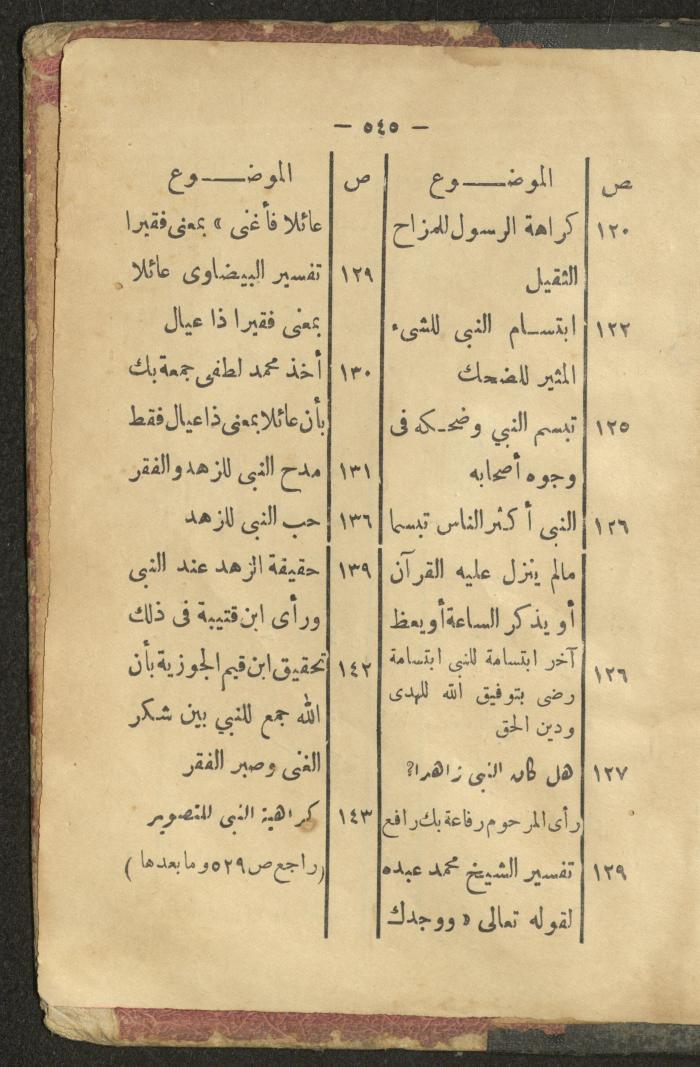 — ٥٤٥ —
ص الموضـــوع
١٢٠ كراهة الرسول للمزاح
الثقيل
١٢٢ ابتسـام النبى للشىء
المثير للضحك
١٢٥ تبسم النبي وضحـكه فى
وجوه أصحابه
١٢٦ النبى أكثر الناس تبسما
مالم ينزل عليه القرآن
أو يذكر الساعة أو يعظ
١٢٦ آخر ابتسامة للنبى ابتسامة
رضى بتوفيق الله للهدى
ودين الحق
١٢٧ هل كان النبى زاهدا؟
رأى المرحوم رفاعة بك رافع
١٢٩ تفسير الشيخ محمد عبده
لقوله تعالى « ووجدك
ص الموضـــوع
عائلا فأغنى » بمعنى فقيرا
١٢٩ تفسير البيضاوى عائلا
بمعنى فقيرا ذا عيال
١٣٠ أخذ محمد لطفى جمعة بك
بأن عائلا بمعنى ذا عيال فقط
١٣١ مدح النبى للزهد والفقر
١٣٦ حب النبى للزهد
١٣٩ حقيقة الزهد عند النبى
ورأى ابن قتيبة فى ذلك
١٤٢ تحقيق ابن قيم الجوزية بأن
الله جمع للنبي بين شكر
الغنى وصبر الفقر
١٤٣ كراهية النبى للتصوير
(راجع ص ٥٢٩ وما بعدها)